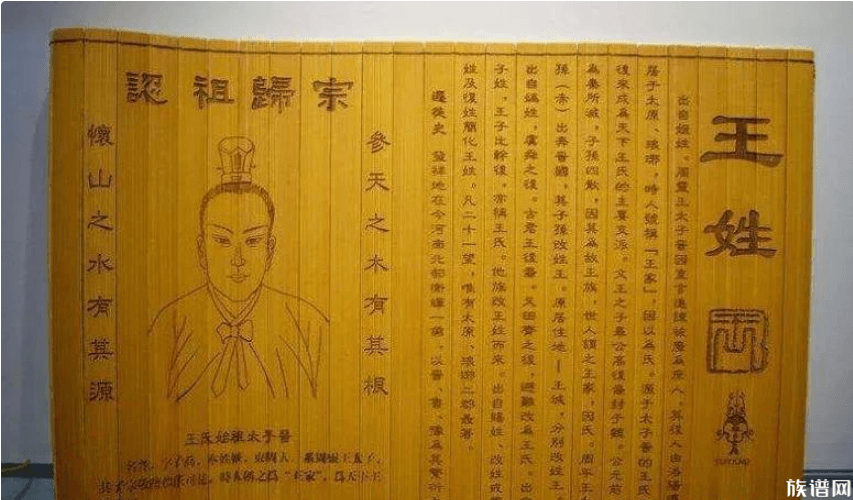 王姓
出自姬姓。周靈王太子晉因直言進諫被廢為庶人，其後人由洛陽
居于太原、琅琊，時人號稱「王家」，因以為氏。源于太子晉的王氏
後來成為天下王氏的主要支派。文王之子畢公高後裔封于魏。公元前
為秦所滅，子孫四散，因其為故王族，世人謂之王家，因氏。周平王
孫（赤）出奔晉國，其子孫改姓王。原居住地—王城，分別改姓王
出自媯姓，虞舜之後。古老王後裔。又田齊之後，避難改為王氏。出
子姓，王子比幹後，亦稱王氏。他族改王姓而來。出自賜姓、改姓
姓及復姓簡化王姓。凡二十一望，唯有太原、琅琊二郡最著。
遷徙史 發祥地在今河南北部衛輝一帶，以晉、魯、豫為其繁衍
認祖歸宗
參天之木有其根
懷山之水有其源
王氏始祖太子晉
族谱网